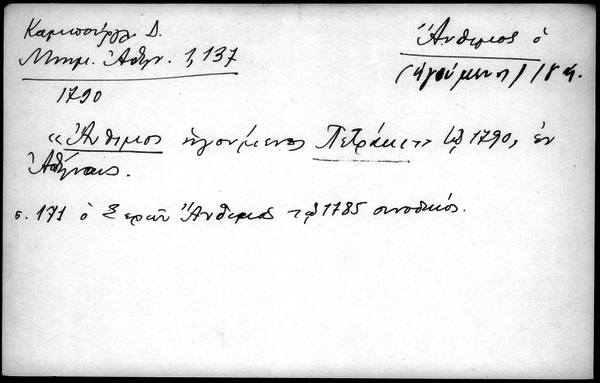 Καμπούργλ. Δ.
Μνημ. Ἀθην. 1, 137
1790
Ἄνθιμος ὁ
(ἡγούμενος) 18 αἰ.
«Ἄνθιμος ἡγούμενος Πετράκι» τῷ 1790, ἐν
Ἀθήναις.
σ. 171 ὁ Ξερῶν Ἄνθιμος τῷ 1785 συνοδικός.